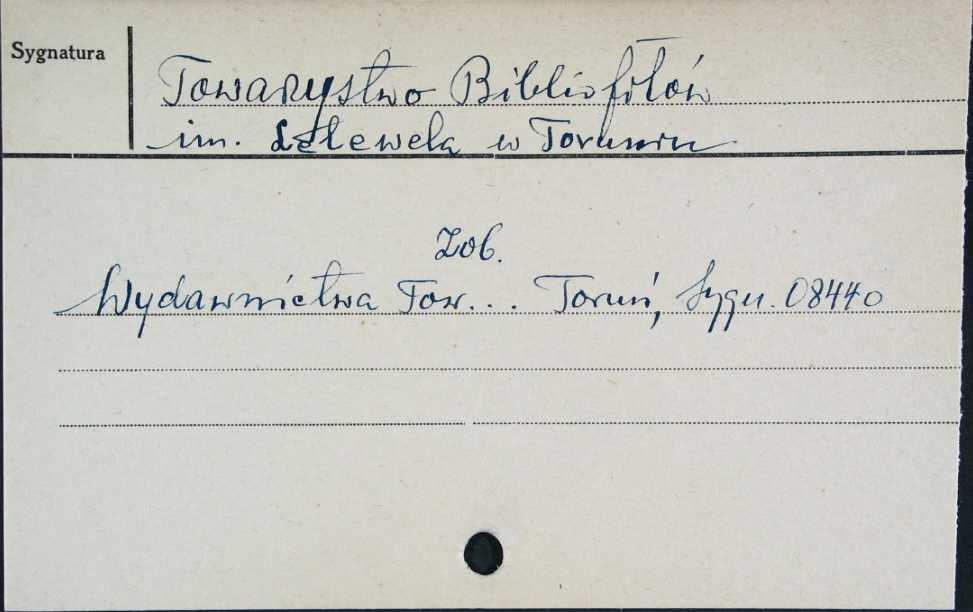 Sygnatura
Towarzystwo Bibliofilów
im. Lelewela w Toruniu
Zob.
Wydawnictwa Tow... Toruń, Sygn. 08440